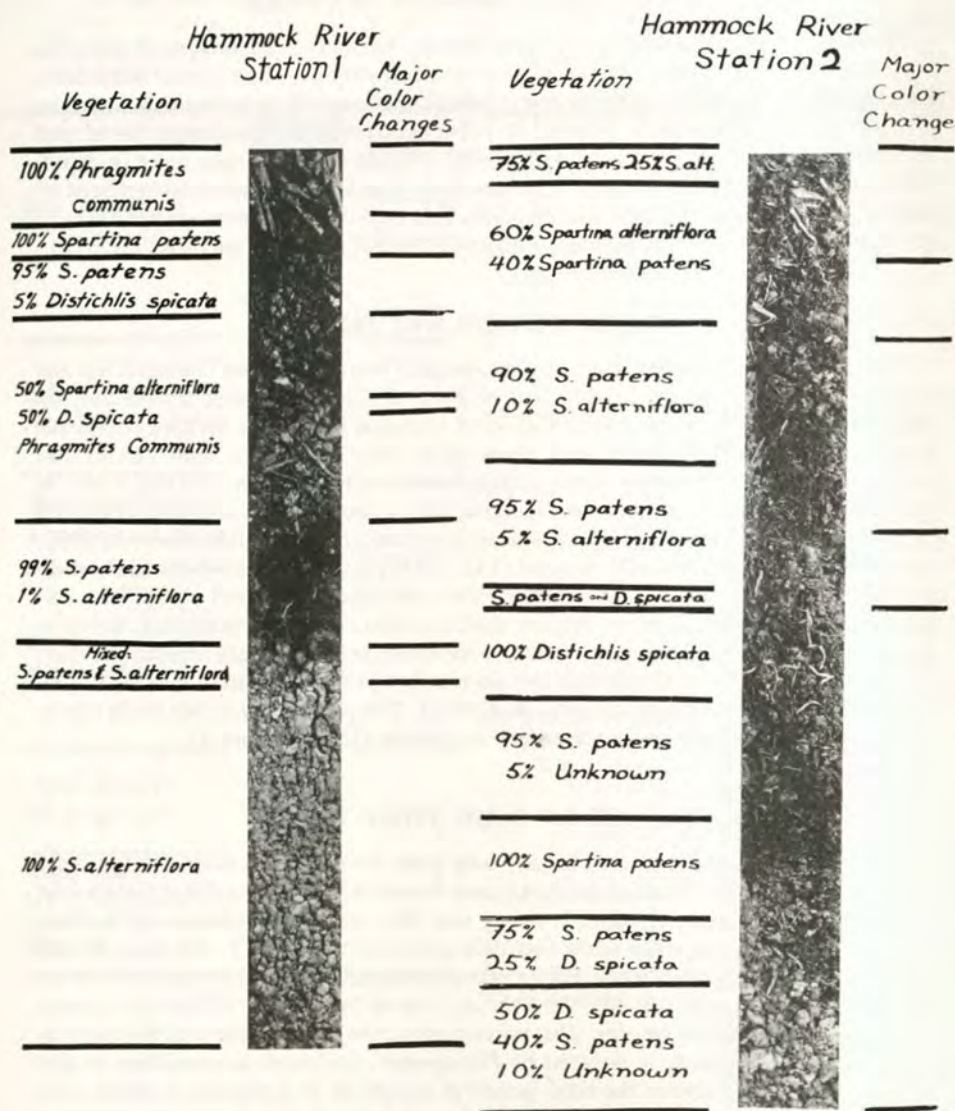 Hammock River
Station 1
Vegetation
Major
Color
Changes
100% Phragmites
communis
100% Spartina patens
95% S. patens
5% Distichlis spicata
50% Spartina alterniflora
50% D. spicata
Phragmites Communis
99% S. patens
1% S. alterniflora
Mixed
S. patens & S. alterniflora
100% S. alterniflora
Hammock River
Station 2
Vegetation
Major
Color
Change
75% S. patens 25% S. alt.
60% Spartina alterniflora
40% Spartina patens
90% S. patens
10% S. alterniflora
95% S. patens
5% S. alterniflora
S. patens and D. spicata
100% Distichlis spicata
95% S. patens
5% Unknown
100% Spartina patens
75% S. patens
25% D. spicata
50% D. spicata
40% S. patens
10% Unknown